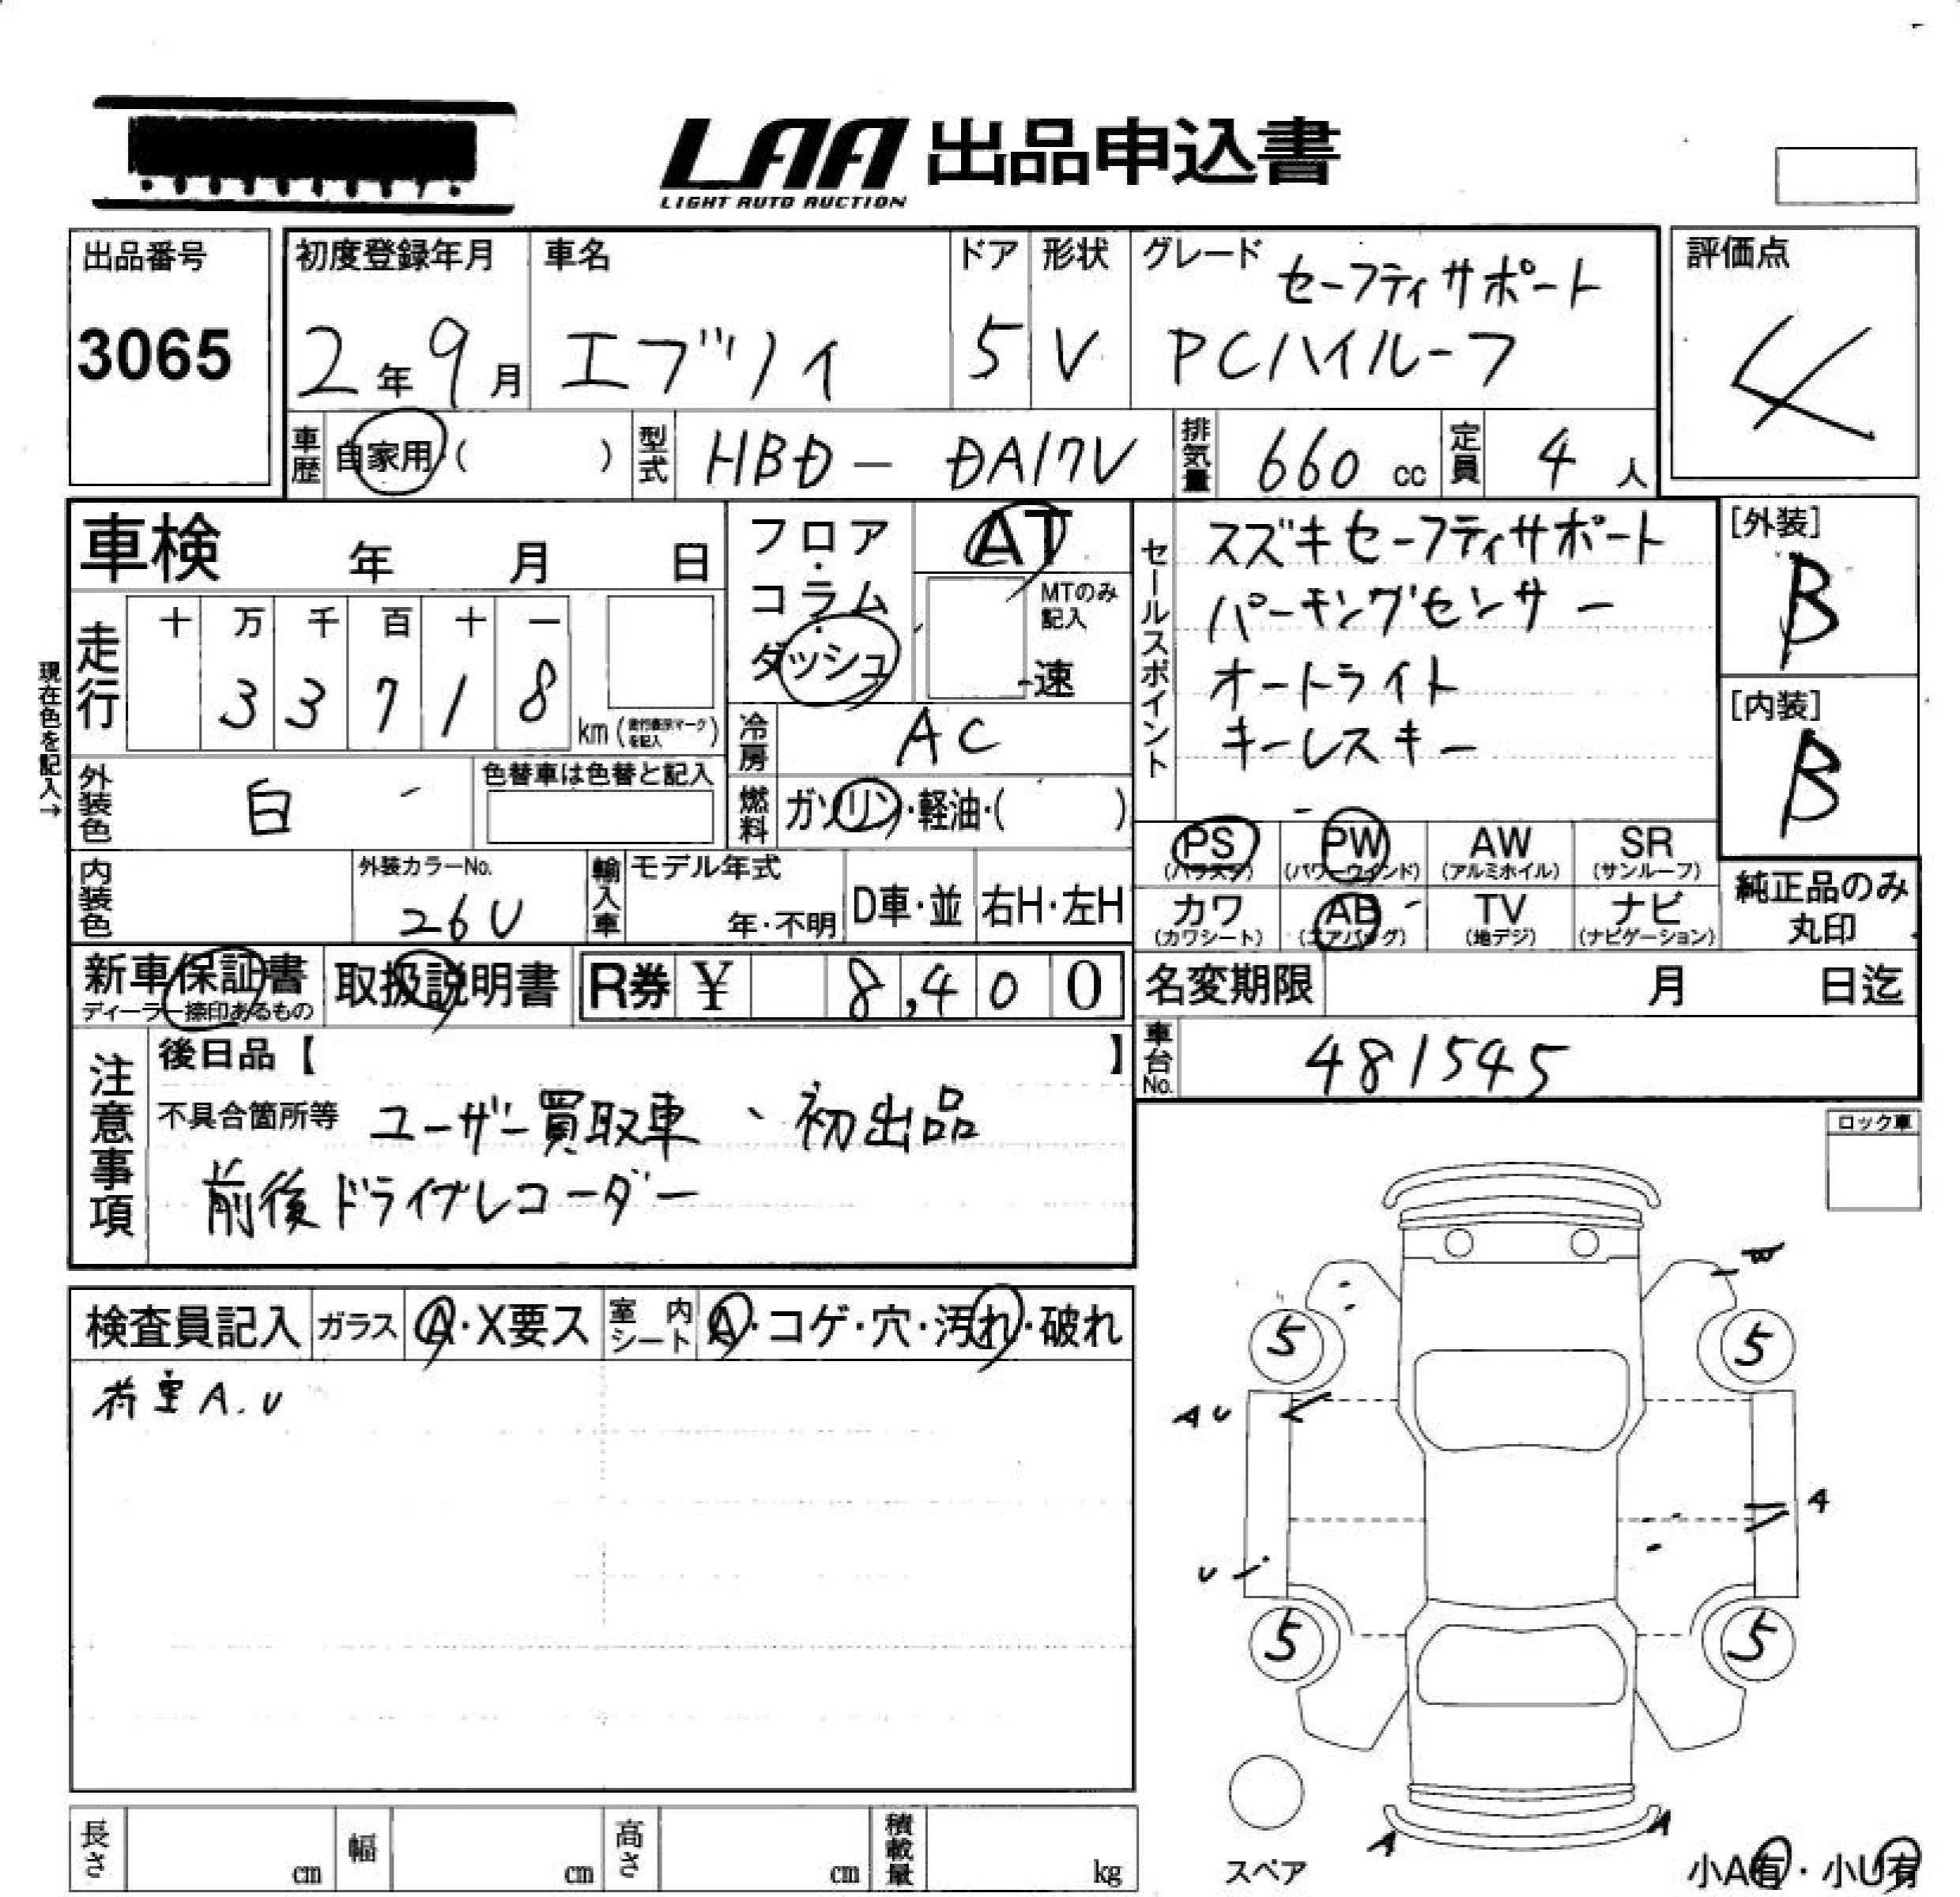 LAA 出品申込書
LIGHT AUTO AUCTION
出品番号
3065
初度登録年月
2年9月
車名
エブリイ
ドア
5
形状
V
グレード
セーフティサポート
PCハイルーフ
評価点
4
車歴
自家用 ( )
型式
HBD - DA17V
排気量
660 cc
定員
4 人
車検 年 月 日
フロア・
コラム・
ダッシュ
AT
MTのみ
記入
速
走行
十 万 千 百 十 一
3 3 7 1 8
km (走行表示マークを記入)
現在色を記入→
冷房
AC
外装色
白
色替車は色替と記入
燃料
ガソリン・軽油・( )
セールスポイント
スズキセーフティサポート
パーキングセンサー
オートライト
キーレスキー
[外装]
B
[内装]
B
内装色
外装カラーNo.
26U
輸入車
モデル年式
年・不明
D車・並
右H・左H
PS PW AW SR
(パワステ) (パワーウインド) (アルミホイル) (サンルーフ)
カワ AB TV ナビ
(カワシート) (エアバッグ) (地デジ) (ナビゲーション)
純正品のみ
丸印
新車保証書
ディーラー捺印あるもの
取扱説明書
R券 ¥ 8,400
名変期限 月 日迄
車台No.
481545
注意事項
後日品【 】
不具合箇所等 ユーザー買取車、初出品
前後ドライブレコーダー
ロック車
検査員記入
ガラス
A・X要ス
室内
シート
A・コゲ・穴・汚れ・破れ
荷室A.U
W
5 5
A U
A
U
5 5
A A
スペア
小A有・小U有
長さ cm
幅 cm
高さ cm
積載量 kg